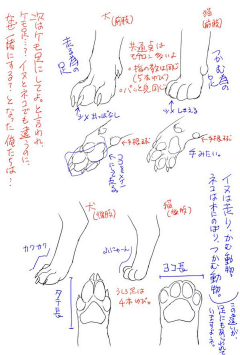 次はケモ足にしてよ。と言われ、
ケモ足…？イヌとネコでも違うのに、
なぜ一緒にする？となった俺たちは…
犬
(前肢)
猫
(前肢)
走る為の
足
つかむ為の
足
共通点は
・指の数は同じ
(5本ゆび)
・パッと見同じ
ツメ出っぱなし
ツメしまえる
手根球
手根球
手みたい。
イヌは走り、かむ動物。
ネコは木にのぼり、つかむ動物。
この違いが、
足にもあらわれて
いますよ。
犬
(後肢)
猫
(後肢)
カクカク
うしろ足は
4本ゆび。
タテ長
ヨコ長